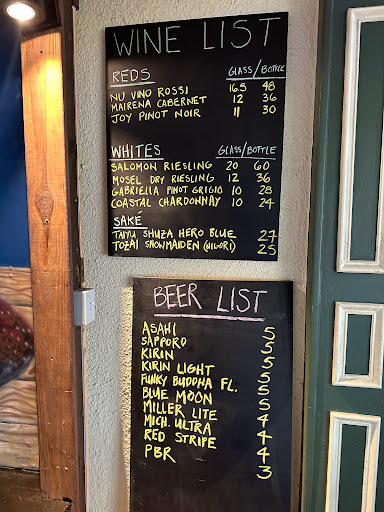 WINE LIST
REDS GLASS/BOTTLE
NU VINO ROSSI 16.5 48
MAIRENA CABERNET 12 36
JOY PINOT NOIR 11 30
WHITES GLASS/BOTTLE
SALOMON RIESLING 20 60
MOSEL DRY RIESLING 12 36
GABRIELLA PINOT GRIGIO 10 28
COASTAL CHARDONNAY 10 24
SAKÉ
TAIYU SHUZA HERO BLUE 27
TOZAI SNOWMAIDEN (NIGORI) 25
BEER LIST
ASAHI 5
SAPPORO 5
KIRIN 5
KIRIN LIGHT 5
FUNKY BUDDHA FL. 5
BLUE MOON 5
MILLER LITE 4
MICH. ULTRA 4
RED STRIPE 4
PBR 3